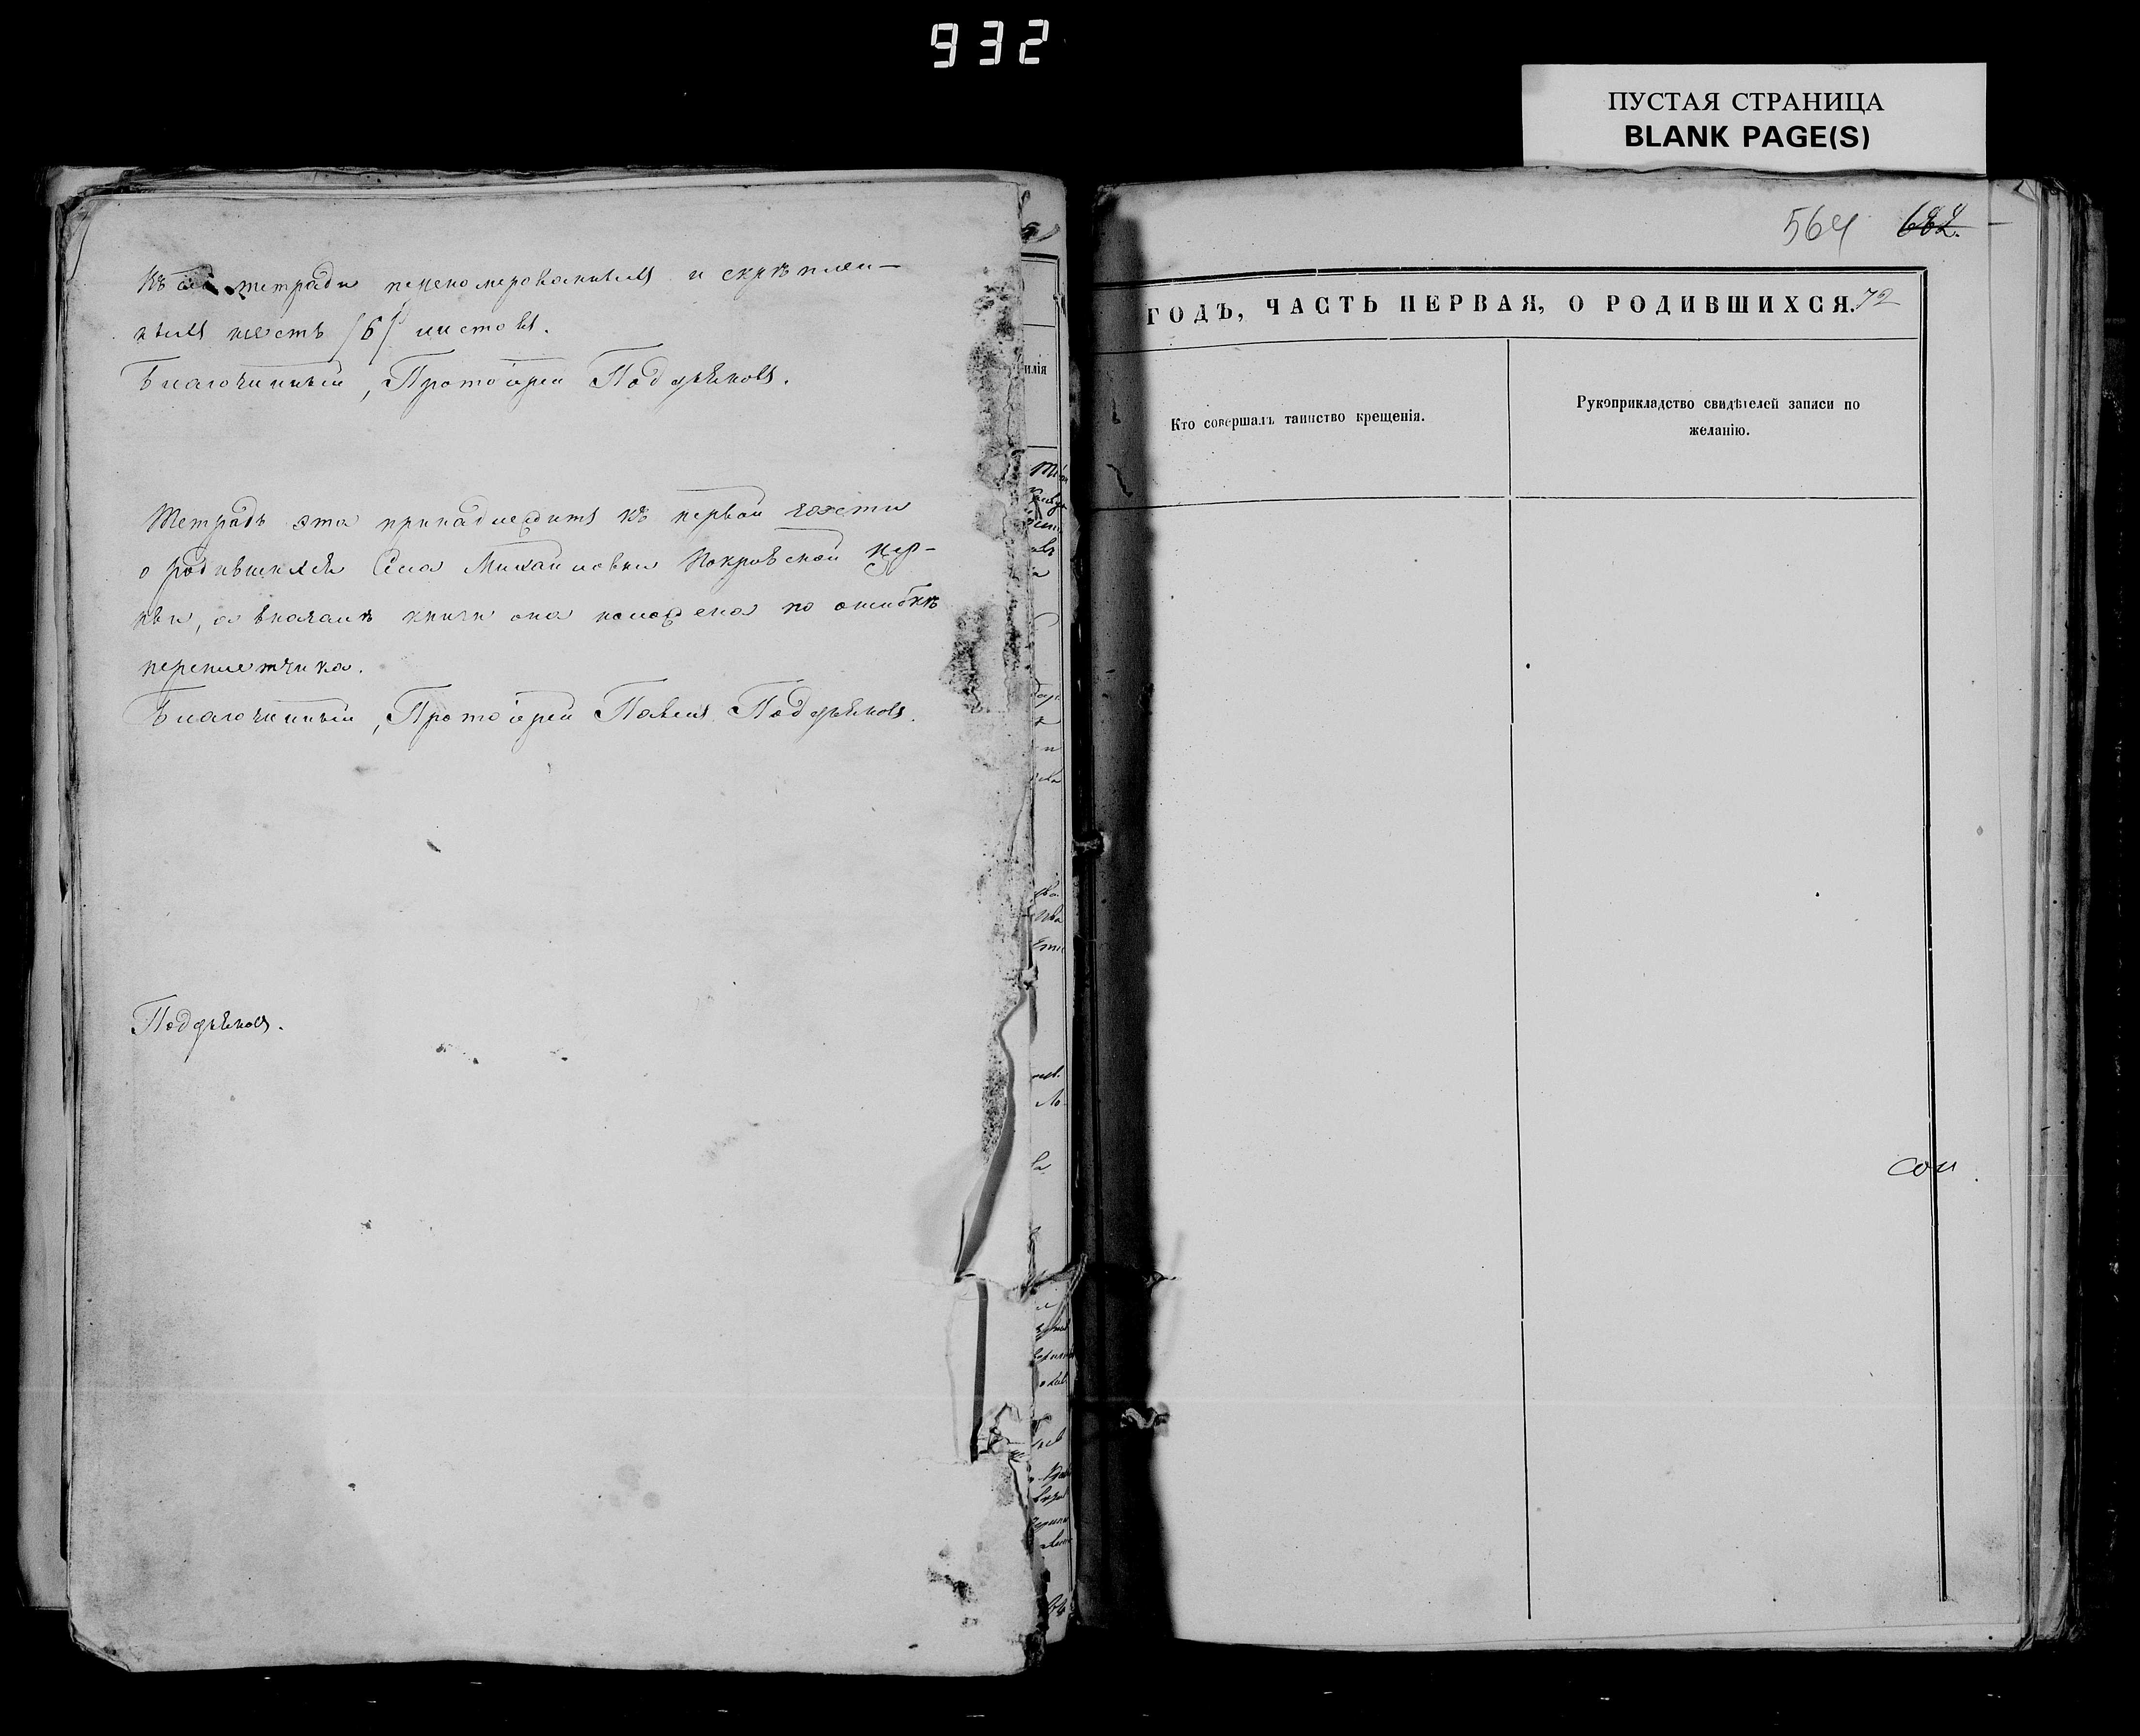 932
ПУСТАЯ СТРАНИЦА
BLANK PAGE(S)
Въ сей тетради переномерованныхъ и скрѣплен-
ныхъ шесть /6/ листовъ.
Благочинный, Протоіерей Поддьяковъ.
Тетрадь эта принадлежитъ къ первой части
о родившихся Села Михайловки Покровской цер-
кви, а вначалѣ книги она положена по ошибкѣ
переплетчика.
Благочинный, Протоіерей Павелъ Поддьяковъ.
Поддьяковъ.
илія
564 682.
ГОДЪ, ЧАСТЬ ПЕРВАЯ, О РОДИВШИХСЯ. 72
Кто совершалъ таинство крещенія.
Рукоприкладство свидѣтелей записи по
желанію.